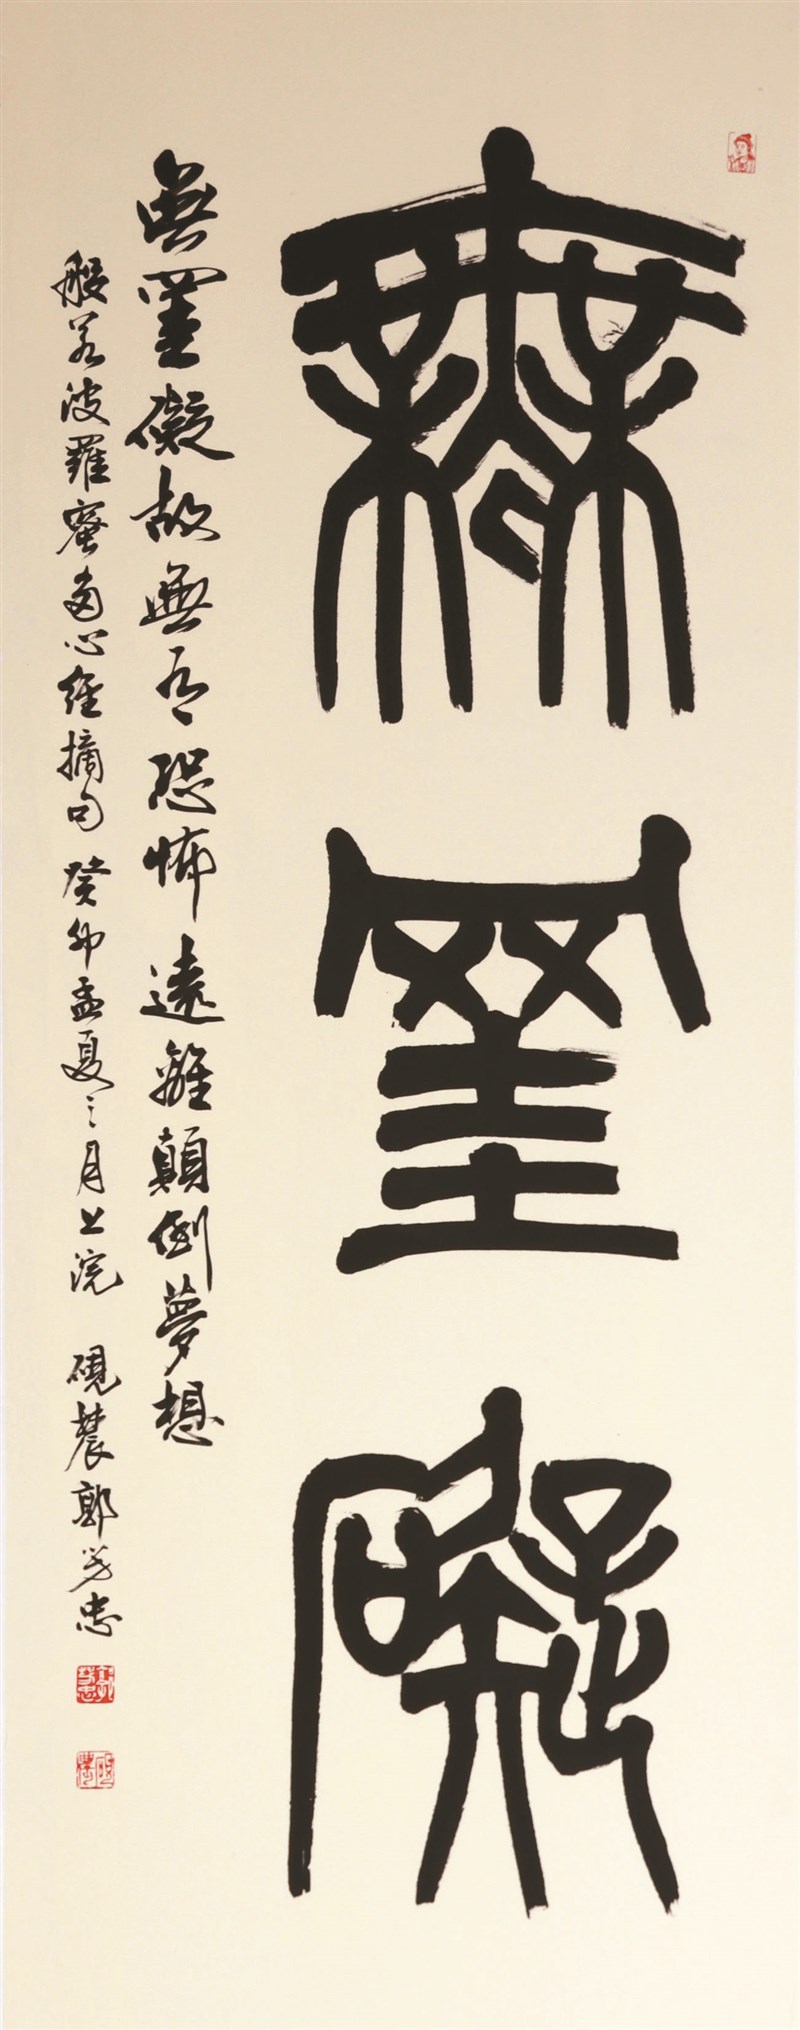 無罣礙
無罣礙故無有恐怖遠離顛倒夢想
般若波羅蜜多心經摘句 癸卯孟夏之月上浣 硯農郭芳忠